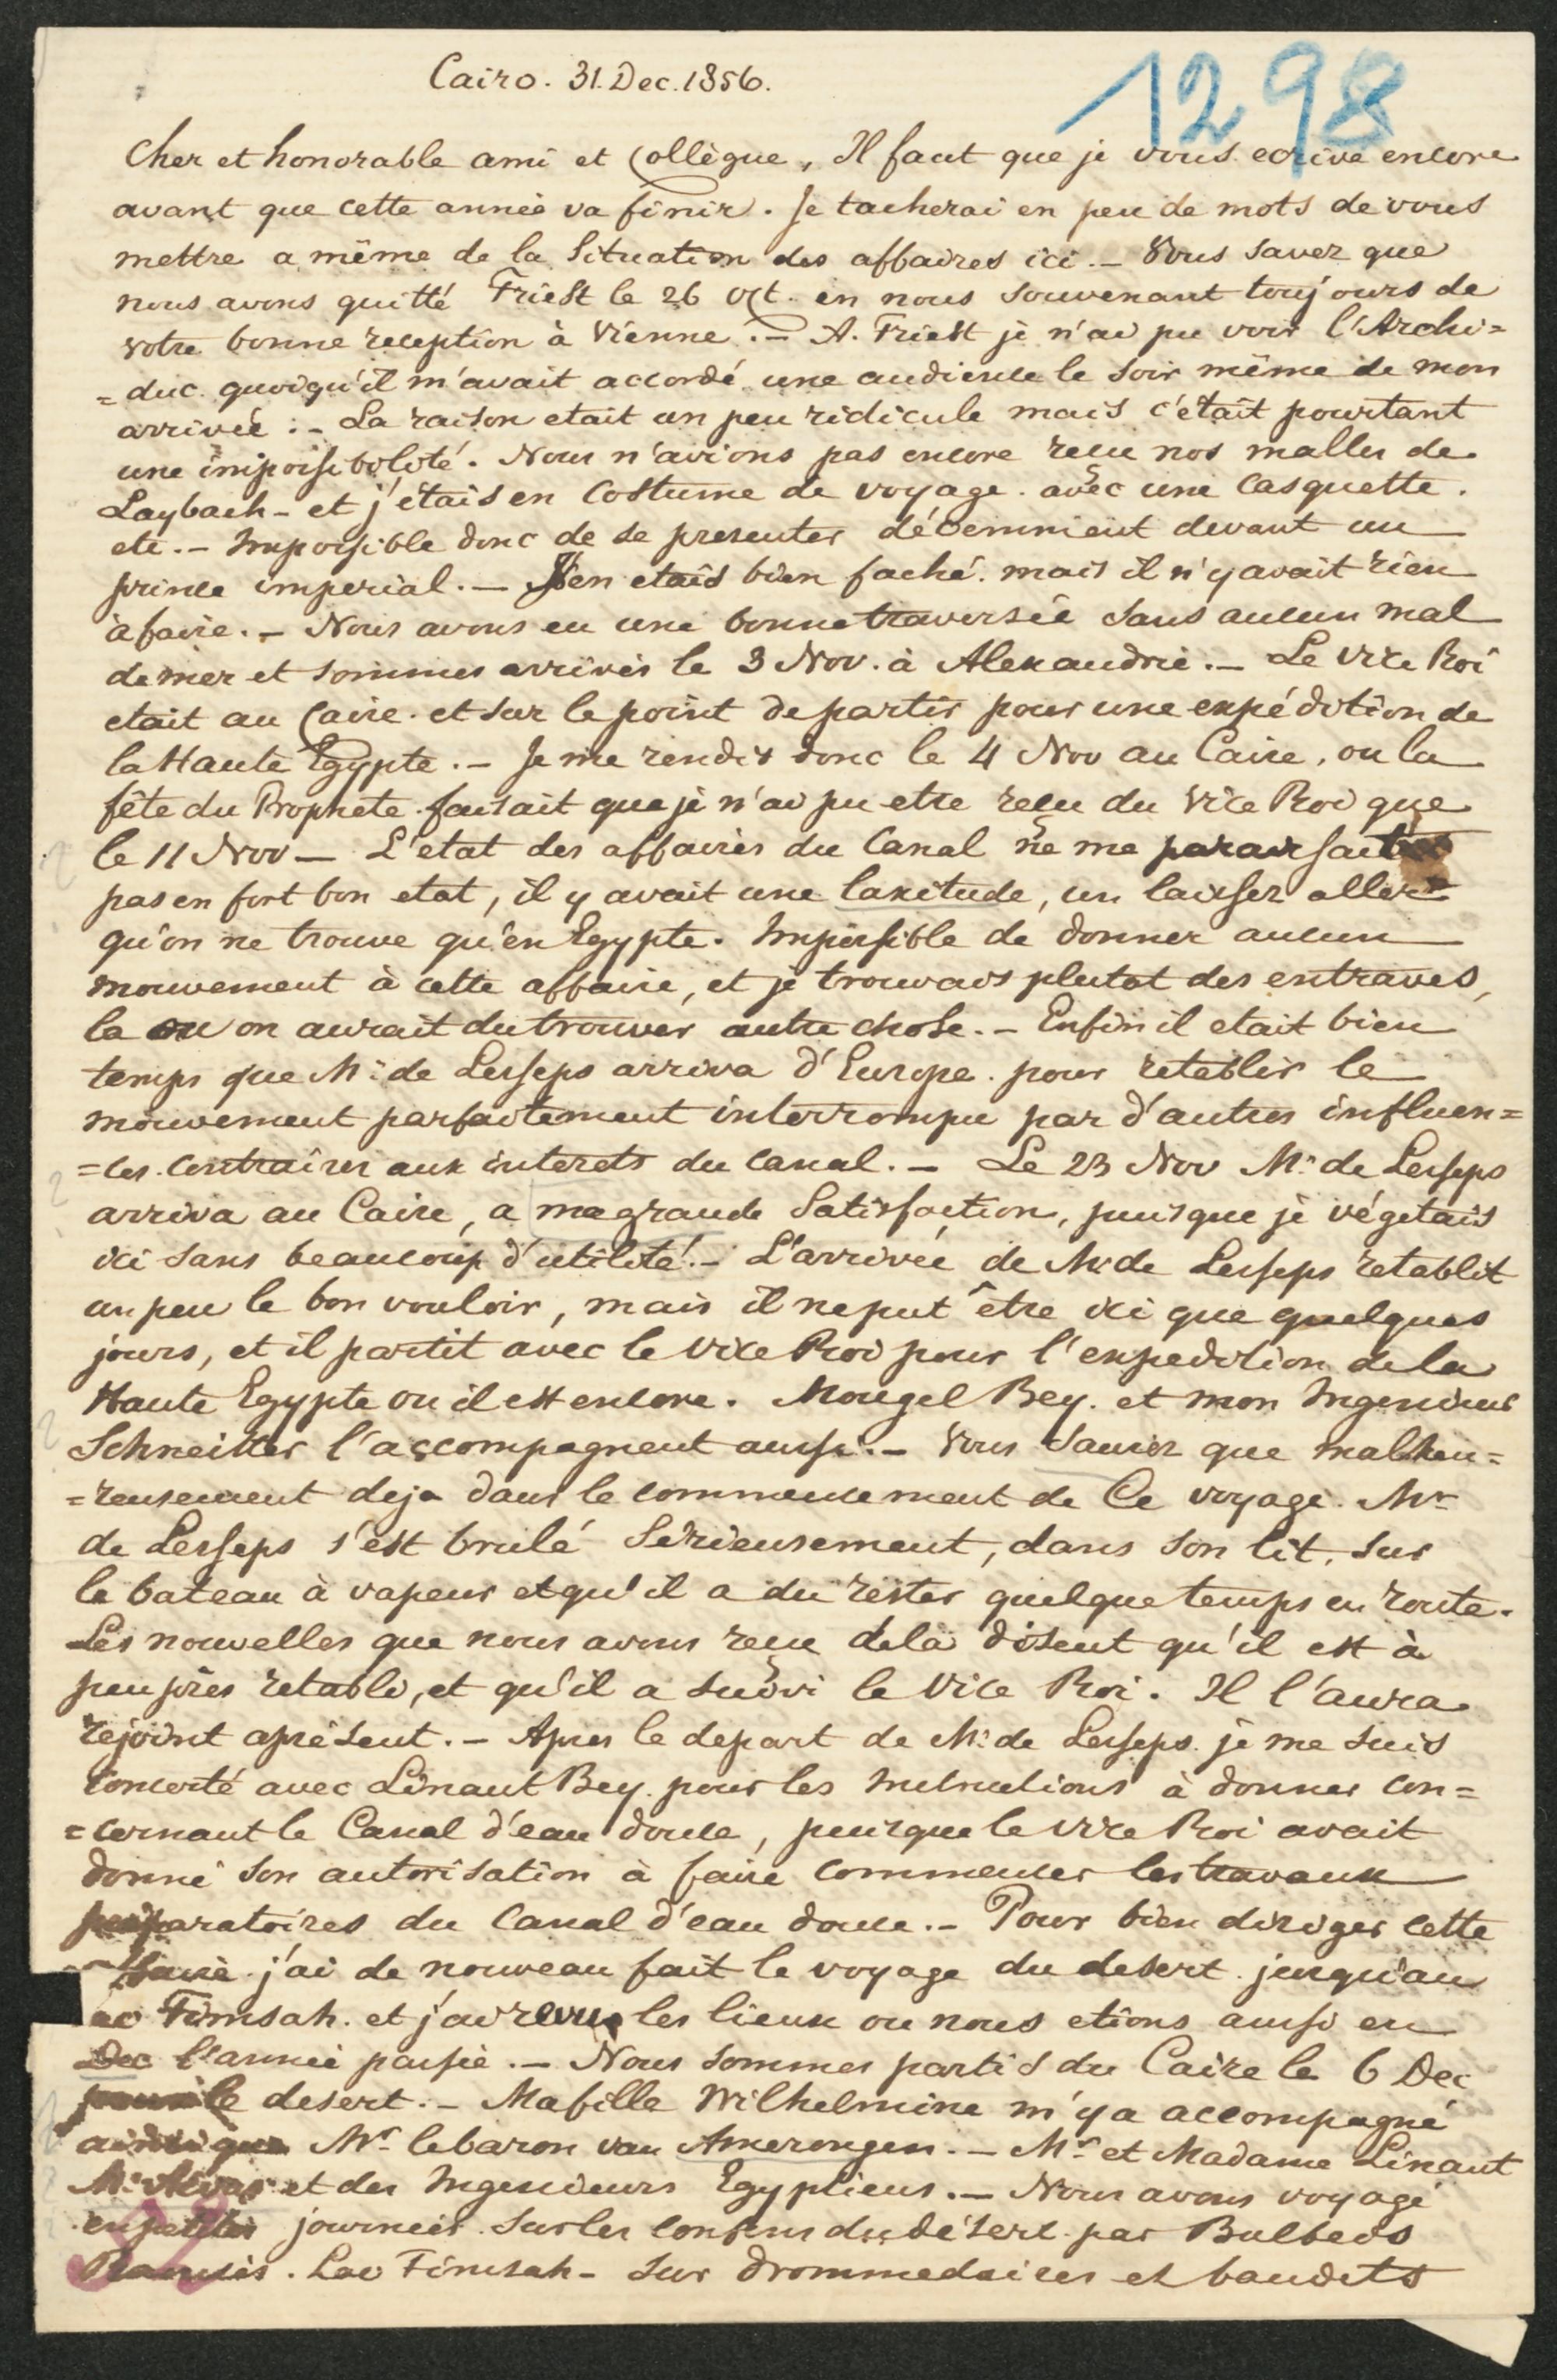 Cairo. 31. Dec. 1856.
1298
Cher et honorable ami et Collègue, Il faut que je vous ecrive encore
avant que cette année va finir. Je tacherai en peu de mots de vous
mettre a même de la Situation des affaires ici. — Vous savez que
nous avons quitté Triest le 26 Oct. en nous souvenant toujours de
votre bonne reception à Vienne. — A. Triest je n'ai pu voir l'Archi=
=duc quoiqu'il m'avait accordé une audience le soir même de mon
arrivée. — La raison etait un peu ridicule mais c'était pourtant
une impossibilité. Nous n'avions pas encore reçu nos malles de
Laybach - et j'étais en Costume de voyage. avec une Casquette.
etc. — Impossible donc de se presenter décemment devant un
prince imperial. — J'en etais bien faché. mais il n'y avait rien
à faire. — Nous avons eu une bonne traversée sans aucun mal
de mer et sommes arrivés le 3 Nov. à Alexandrie. — Le Vice Roi
etait au Caire. et sur le point de partir pour une expédition de
la Haute Egypte. — Je me rendis donc le 4 Nov au Caire, ou la
fête du Prophete faisait que je n'ai pu etre reçu du Vice Roi que
le 11 Nov — L'etat des affaires du Canal ne me paraissait
pas en fort bon etat, il y avait une laxitude, un laisser aller
qu'on ne trouve qu'en Egypte. Impossible de donner aucun
mouvement à cette affaire, et je trouvais plutot des entraves,
la ou on aurait du trouver autre chose. — Enfin il etait bien
temps que Mr de Lesseps arriva d'Europe. pour retablir le
mouvement parfaitement interrompu par d'autres influen=
=ces. Contraires aux interets du Canal. — Le 23 Nov Mr de Lesseps
arriva au Caire, a ma grande Satisfaction, puisque je végetais
ici sans beaucoup d'utilité. — L'arrivée de Mr de Lesseps retablit
un peu le bon vouloir, mais il ne put être ici que quelques
jours, et il partit avec le Vice Roi pour l'expedition de la
Haute Egypte ou il est encore. Mougel Bey. et mon Ingenieur
Schneitter l'accompagnent aussi. — Vous Saurez que malheu=
=reusement deja dans le commencement de Ce voyage. Mr
de Lesseps s'est brulé Sérieusement, dans son lit, sur
le bateau à vapeur et qu'il a du rester quelque temps en route.
Les nouvelles que nous avons reçu de là disent qu'il est à
peu près retabli, et qu'il a suivi le Vice Roi. Il l'aura
rejoint apresent. — Apres le depart de Mr de Lesseps. je me suis
concerté avec Linant Bey. pour les Instructions à donner con=
=cernant le Canal d'eau douce, puisque le Vice Roi avait
donné son autorisation à faire commencer les travaux
preparatoires du Canal d'eau douce. — Pour bien diriger cette
j'ai de nouveau fait le voyage du desert. jusqu'au
Timsah. et j'ai revu les lieux ou nous etions aussi en
Dec l'année passée. — Nous sommes partis du Caire le 6 Dec
le desert. — Ma fille Wilhelmine m'y a accompagné
ainsi que Mr le baron van Amerongen. — Mr et Madame Linant
et des Ingenieurs Egyptiens. — Nous avons voyagé
en petites journées. Sur les confins du désert. par Bulbeis
Ramsis. Lac Timsah - Sur drommedaires et baudets